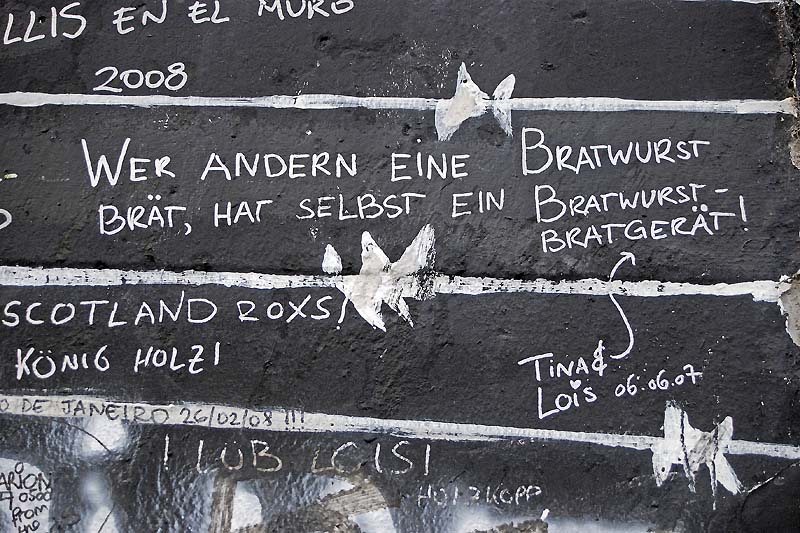 LLIS EN EL MURO
2008
WER ANDERN EINE BRATWURST
BRÄT, HAT SELBST EIN BRATWURST-
BRATGERÄT!
SCOTLAND ROXS!
KÖNIG HOLZI
TINA &
LOIS 06.06.07
O DE JANEIRO 26/02/08 !!!
I LUB LOISI
HOIZKOPP
ARION
from
the